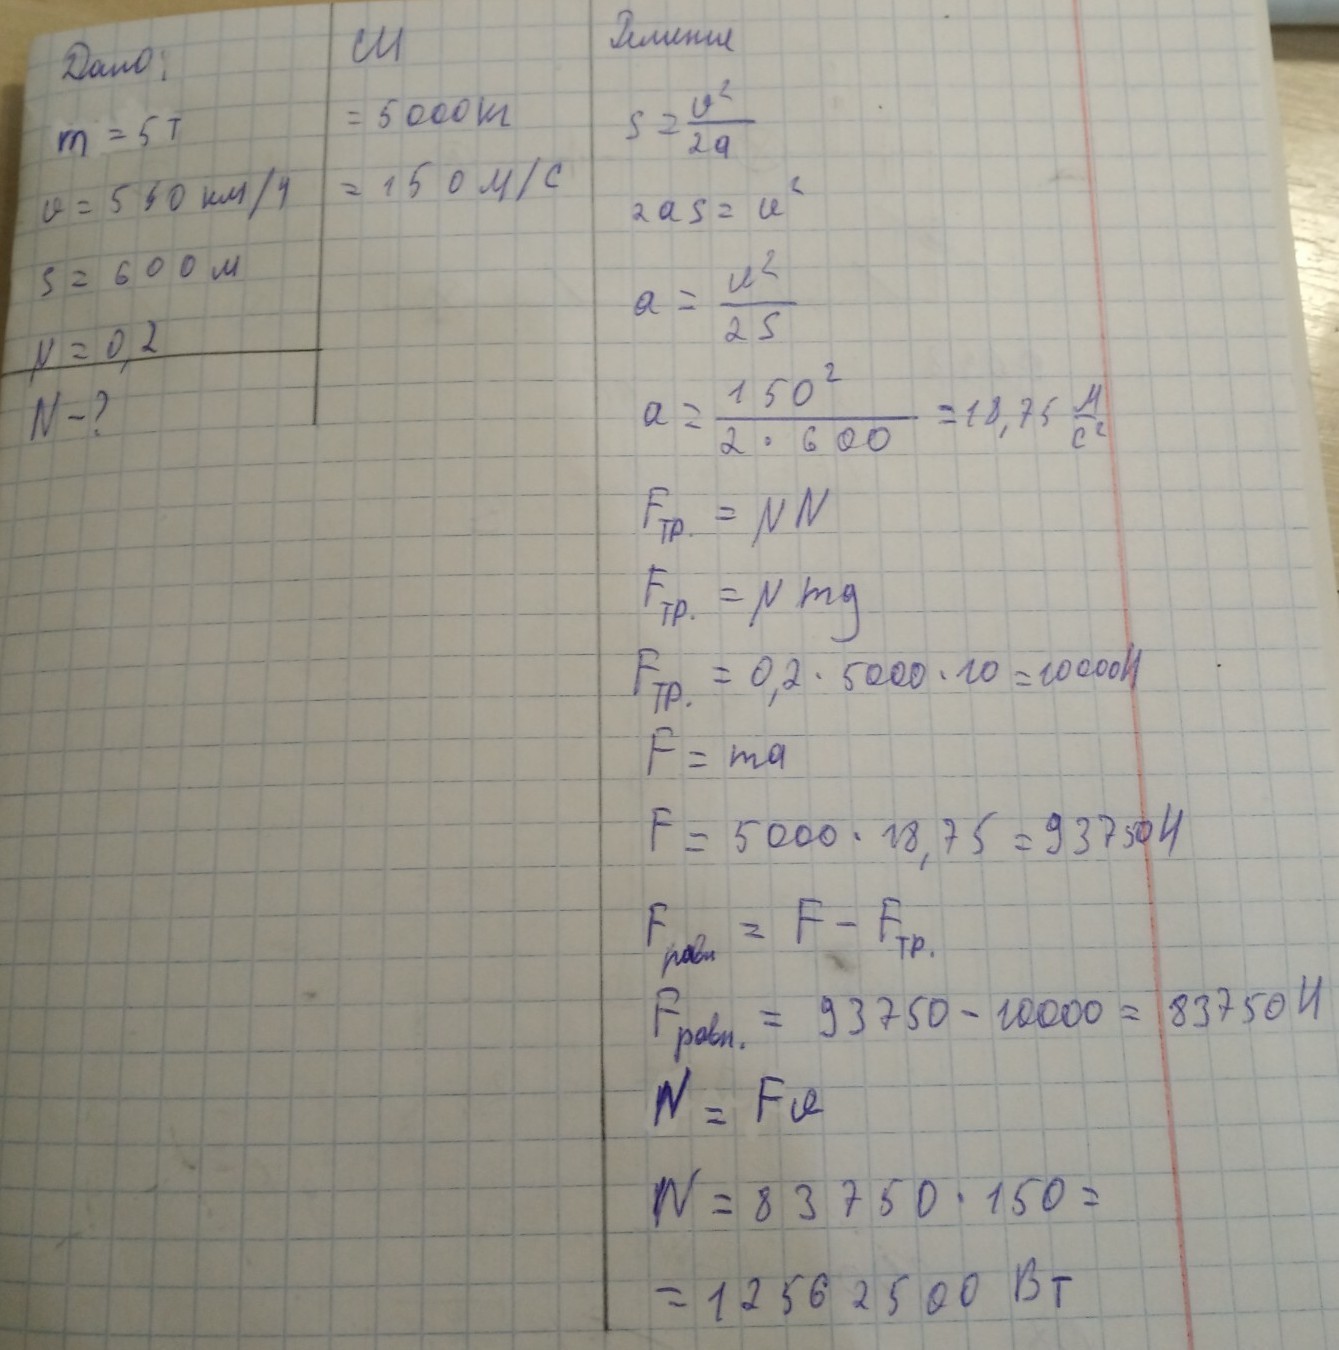 Дано:
m = 5т
v = 540 км/ч
s = 600 м
μ = 0,2
N - ?
СИ
= 5000кг
= 150 м/с
Решение
s = v²/2a
2as = v²
a = v²/2s
a = 150²/2·600 = 18,75 м/с²
Fтр. = μN
Fтр. = μmg
Fтр. = 0,2·5000·10 = 10000Н
F = ma
F = 5000·18,75 = 93750Н
Fравн = F - Fтр.
Fравн. = 93750 - 10000 = 83750Н
N = Fv
N = 83750·150 =
= 12562500 Вт